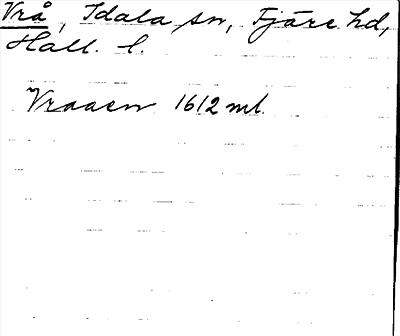 Vrå, Idala sn, Fjäre hd,
Hall. l.
Vraaen 1612 ml.